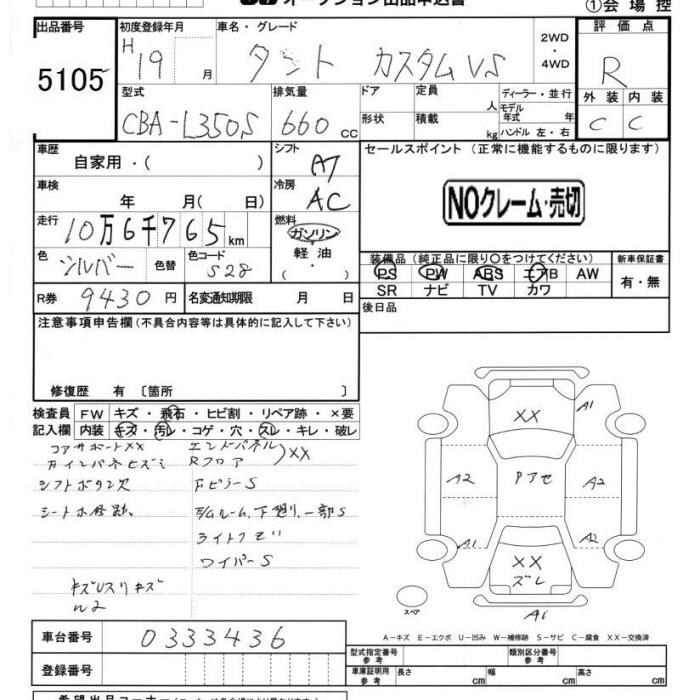 オークション出品申込書
①会場控
出品番号
5105
初度登録年月
H 19 月
車名・グレード
タント カスタムVS
2WD
・
4WD
評価点
R
外装 内装
C C
型式
CBA-L350S
排気量
660 cc
ドア
形状
定員 人
積載 kg
ディーラー・並行
モデル年式 年
ハンドル 左・右
車歴
自家用・( )
シフト
AT
車検
年 月( 日)
冷房
AC
走行
10万6千765km
燃料
ガソリン
軽油
( ・ )
色
シルバー
色替
色コード
S28
R券 9430円
名変通知期限 月 日
セールスポイント(正常に機能するものに限ります)
NOクレーム・売切
装備品(純正品に限り○をつけてください)
新車保証書
PS PW ABS エアB AW
SR ナビ TV カワ
有・無
後日品
注意事項申告欄(不具合内容等は具体的に記入して下さい)
修復歴 有〔箇所 〕
検査員
記入欄
FW キズ・飛石・ヒビ割・リペア跡・×要
内装 キズ・汚レ・コゲ・穴・スレ・キレ・破レ
コアサポートXX
エンドパネル
Rフロア
XX
シフトボタン欠
FピラーS
シートホ修跡
ルーム,下廻り,一部S
ワイパーS
XX
A1
A2
Pアセ
A2
A1
A2
XX
ズレ
A1
スペア
A-キズ E-エクボ U-凹み W-補修跡 S-サビ C-腐食 XX-交換済
車台番号 0333436
登録番号
型式指定番号
参考
類別区分番号
参考
車庫証明用
参考
長さ cm
幅 cm
高さ cm